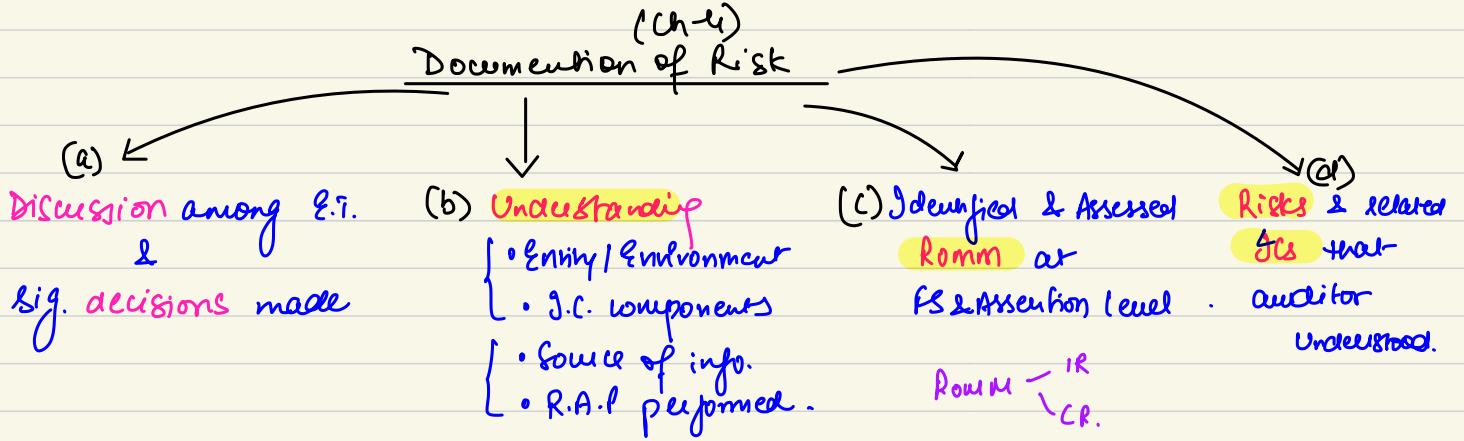 (Ch-4)
Documention of Risk
(a)
Discussion among E.T.
&
Sig. decisions made
(b) Understanding
• Entity/Environment
• I.C. components
• Source of info.
• R.A.P performed.
(c) Identified & Assessed
Romm at
FS & Assertion level.
(d)
Risks & related
ICs that
auditor
Understood.
RomM
IR
CR.